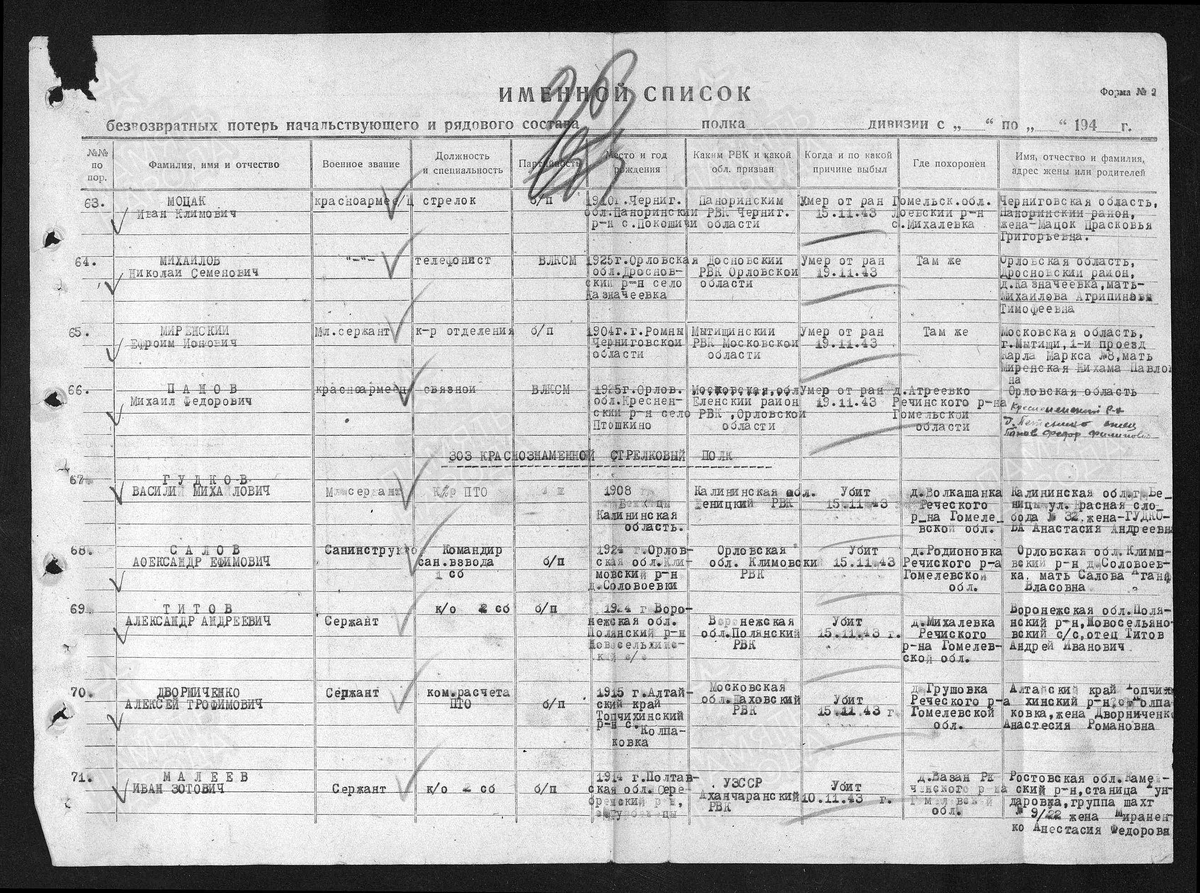 ИМЕННОЙ СПИСОК
Форма № 2
безвозвратных потерь начальствующего и рядового состава полка дивизии с „ “ по „ “ 194 г.
№№ по пор.
Фамилия, имя и отчество
Военное звание
Должность и специальность
Партийность
Место и год рождения
Каким РВК и какой обл. призван
Когда и по какой причине выбыл
Где похоронен
Имя, отчество и фамилия, адрес жены или родителей
63.
МОЦАК
Иван Климович
красноармеец
стрелок
б/п
1910г. Черниг.
обл. Паноринский
р-н с. Покошичи
Паноринским
РВК Черниг.
области
Умер от ран
15.11.43
Гомельск.обл.
Лоевский р-н
с.Михалевка
Черниговская область,
Паноринский район,
жена-Мацок Прасковья
Григорьевна.
64.
МИХАЙЛОВ
Николай Семенович
"-"-
телефонист
ВЛКСМ
1925г.Орловская
обл. Дроснов-
ский р-н село
Казначеевка
Досновский
РВК Орловской
области
Умер от ран
19.11.43
Там же
Орловская область,
Дросновский район,
д.Казначеевка,мать-
Михайлова Агрипина
Тимофеевна
65.
МИРЕНСКИЙ
Ефроим Йонович
Мл.сержант
к-р отделения
б/п
1904г.г.Ромны
Черниговской
области
Мытищинский
РВК Московской
области
Умер от ран
19.11.43
Там же
Московская область,
г.Мытищи,1-й проезд
Карла Маркса №8,мать
Миренская Михама Павлов
на
66.
ПАНОВ
Михаил Федорович
красноармеец
связной
ВЛКСМ
1925г.Орлов.
обл.Креснен-
ский р-н село
Птошкино
Московская обл
Еленский район
РВК ,Орловской
области
Умер от ран
19.11.43
д.Атреевко
Речинского р-на
Гомельской
области
Орловская область
303 КРАСНОЗНАМЕННОЙ СТРЕЛКОВЫЙ ПОЛК
67.
ГУДКОВ
ВАСИЛИЙ МИХАЙЛОВИЧ
Мл.сержант
К/р ПТО
1908
Калининская
область.
Калининская обл.
РВК
Убит
15.11.43
д.Волкашанка
Реческого
р_на Гомеле_
вской обл.
Калининская обл.г.Бе-
ницы ул.Красная сло-
бода № 32,жена-ГУДКО-
ВА Анастасия Андреевна
68.
САЛОВ
АОЕКСАНДР ЕФИМОВИЧ
Санинструк
Командир
сан.взвода
1 сб
б/п
1924 г.Орлов-
ская обл.Кли-
мовский р-н
д.Соловоевки
Орловская
обл. Климовский
РВК
Убит
15.11.43
д.Родионовка
Речиского р-а
Гомелевской
обл.
Орловская обл.Клим-
вский р-н д.Соловоев-
ка, мать Салова
Власовна
69.
ТИТОВ
АЛЕКСАНДР АНДРЕЕВИЧ
Сержант
к/о 2 сб
б/п
1924 г Воро-
нежская обл.
Полянский р-н
Воронежская
обл.Полянский
РВК
Убит
15.11.43 г.
д.Михалевка
Речиского
р-на Гомелев-
ской обл.
Воронежская обл.Поля-
нский р-н,Новосельяно-
вский с/с,отец Титов
Андрей Иванович
70.
ДВОРНИЧЕНКО
АЛЕКСЕЙ ТРОФИМОВИЧ
Сержант
ком.расчета
ПТО
б/п
1915 г.Алтай-
ский край
Топчихинский
р-н с.
Колпа-
ковка
Московская
обл.Шаховский
РВК
Убит
15.11.43 г
д.Грушовка
Реческого р-а
Гомелевской
обл.
Алтайский край Топчих
хинский р-н,с.Колпа
ковка,жена Дворниченк
Анастесия Романовна
71.
МАЛЕЕВ
ИВАН ЗОТОВИЧ
Сержант
к/о 2 сб
б/п
1914 г.Полтав-
ская обл.
УЗССР
Аханчаранский
РВК
Убит
10.11.43 г.
д.Вазан
обл.
Ростовская обл.Камен-
ский р-н,станица Гун-
даровка,группа шахт
№ 9/22 жена Миранен-
ко Анестасия Федорова